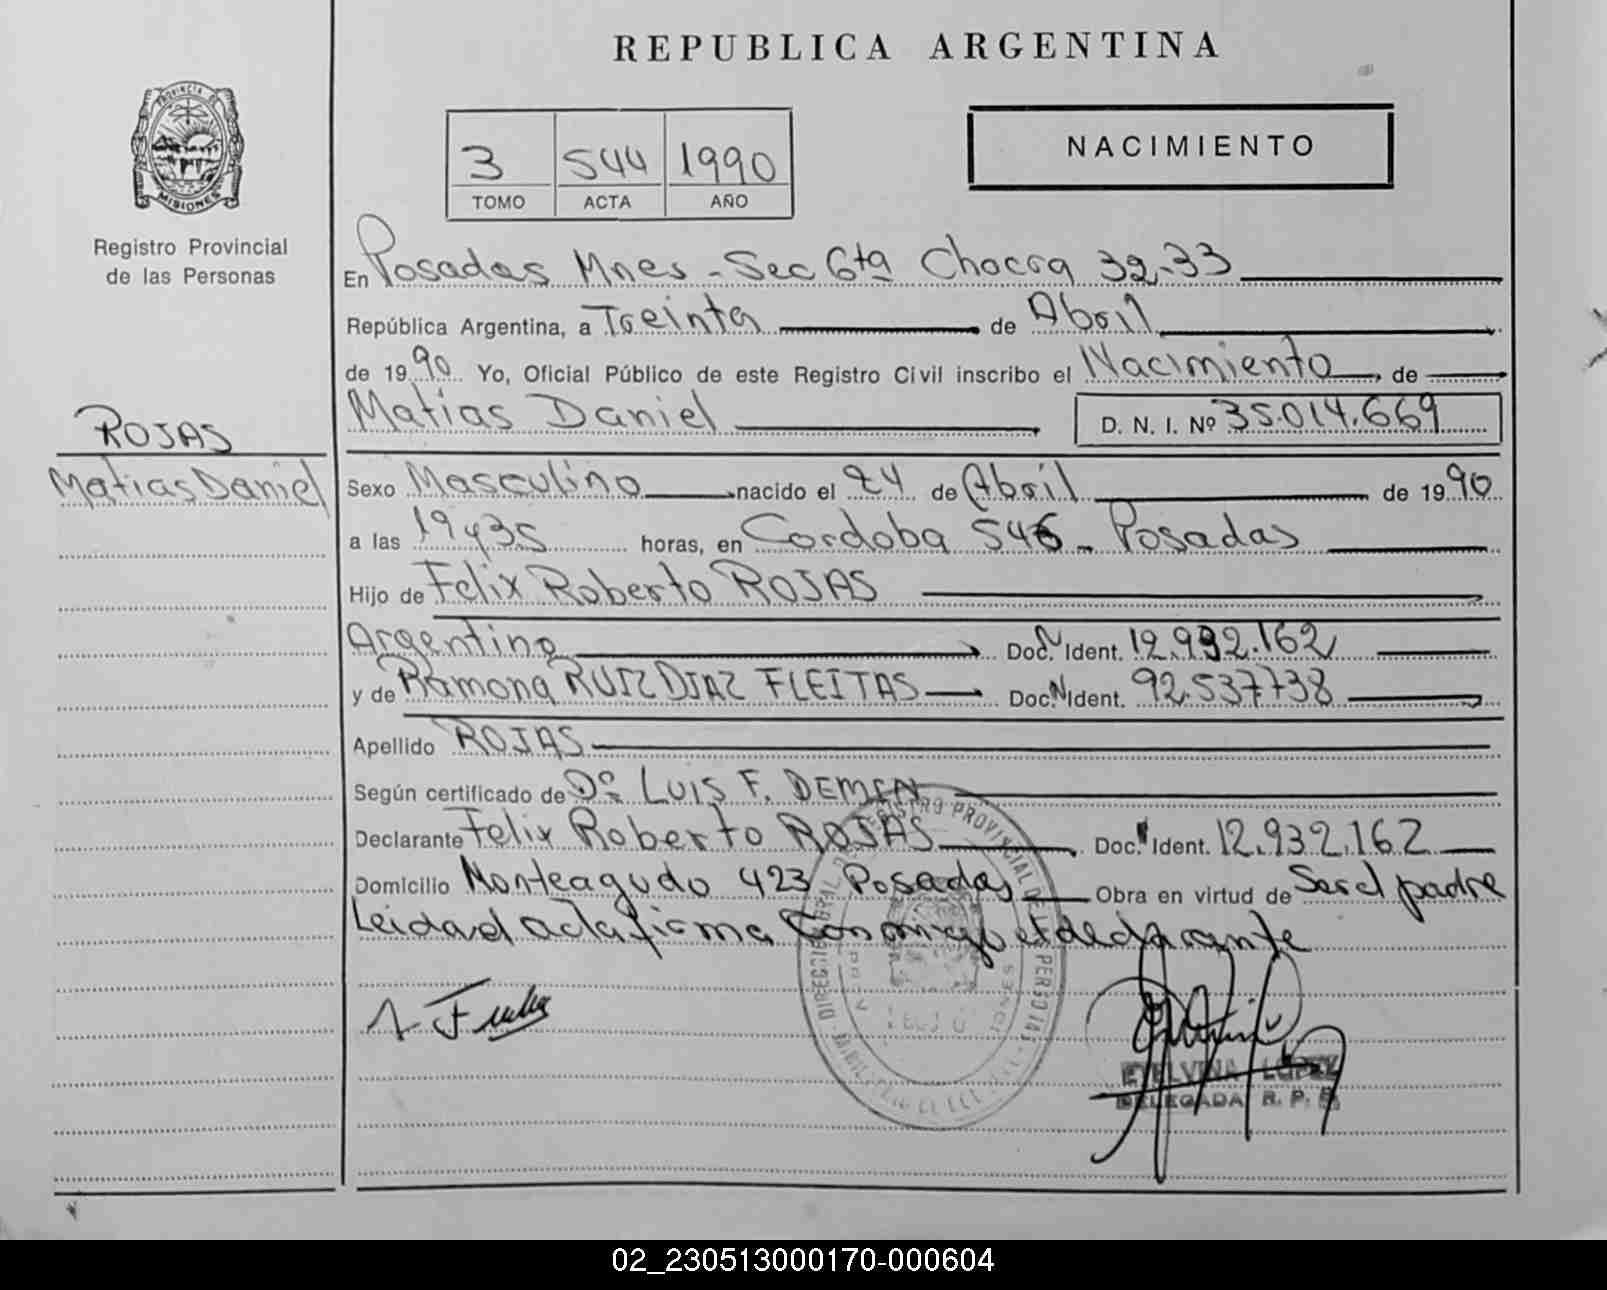 REPUBLICA ARGENTINA
PROVINCIA DE
MISIONES
Registro Provincial
de las Personas
3 544 1990
TOMO ACTA AÑO
NACIMIENTO
En Posadas Mnes - Sec 6ta Chacra 32-33
República Argentina, a Treinta de Abril
de 1990 Yo, Oficial Público de este Registro Civil inscribo el Nacimiento, de
Matias Daniel D. N. I. Nº 35.014.669
ROJAS
Matias Daniel
Sexo Masculino nacido el 24 de Abril de 1990
a las 19y35 horas, en Cordoba 546 - Posadas
Hijo de Felix Roberto ROJAS
Argentino Doc. N Ident. 12.932.162
y de Ramona RUIZ DIAZ FLEITAS Doc. N Ident. 92.537738
Apellido ROJAS
Según certificado de Dr LUIS F. DEMEN
Declarante Felix Roberto ROJAS Doc. Ident. 12.932.162
Domicilio Monteagudo 423 Posadas Obra en virtud de Ser el padre
Leida el acta firma conmigo el declarante
REGISTRO PROVINCIAL DE LAS PERSONAS
ETELVINA LOPEZ
DELEGADA R. P. P.
02_230513000170-000604